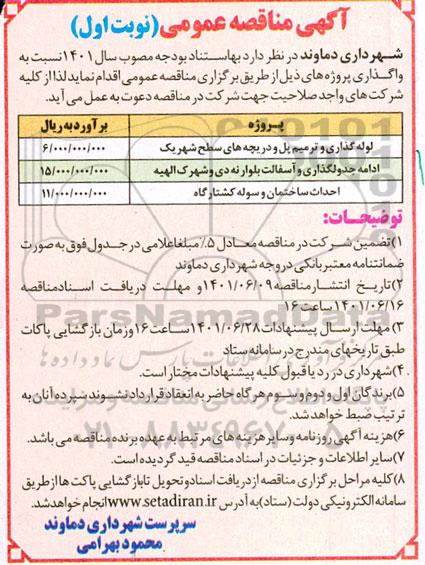 آگهی مناقصه عمومی (نوبت اول)
شهرداری دماوند در نظر دارد به‌استناد بودجه مصوب سال ۱۴۰۱ نسبت به
واگذاری پروژه های ذیل از طریق برگزاری مناقصه عمومی اقدام نماید لذا از کلیه
شرکت های واجد صلاحیت جهت شرکت در مناقصه دعوت به عمل می آید.
پروژه برآورد به ریال
لوله گذاری و ترمیم پل و دریچه های سطح شهر یک ۶/۰۰۰/۰۰۰/۰۰۰
ادامه جدولگذاری و آسفالت بلوار نه دی و شهرک الهیه ۱۵/۰۰۰/۰۰۰/۰۰۰
احداث ساختمان و سوله کشتارگاه ۱۱/۰۰۰/۰۰۰/۰۰۰
توضیحات:
۱)تضمین شرکت در مناقصه معادل ۵٪ مبلغ اعلامی در جدول فوق به صورت
ضمانتنامه معتبر بانکی در وجه شهرداری دماوند
۲)تاریخ انتشار مناقصه ۱۴۰۱/۰۶/۰۹ و مهلت دریافت اسناد مناقصه
۱۴۰۱/۰۶/۱۶ ساعت ۱۶
۳) مهلت ارسال پیشنهادات ۱۴۰۱/۰۶/۲۸ ساعت ۱۶ و زمان بازگشایی پاکات
طبق تاریخهای مندرج در سامانه ستاد
۴)شهرداری در رد یا قبول کلیه پیشنهادات مختار است.
۵)برندگان اول و دوم و سوم هرگاه حاضر به انعقاد قرارداد نشوند سپرده آنان به
ترتیب ضبط خواهد شد.
۶)هزینه آگهی روزنامه و سایر هزینه های مرتبط به عهده برنده مناقصه می باشد.
۷)سایر اطلاعات و جزئیات در اسناد مناقصه قید گردیده است.
۸)کلیه مراحل برگزاری مناقصه از دریافت اسناد و تحویل تا بازگشایی پاکت ها از طریق
سامانه الکترونیکی دولت (ستاد) به آدرس www.setadiran.ir انجام خواهد شد.
سرپرست شهرداری دماوند
محمود بهرامی
ParsNamadData